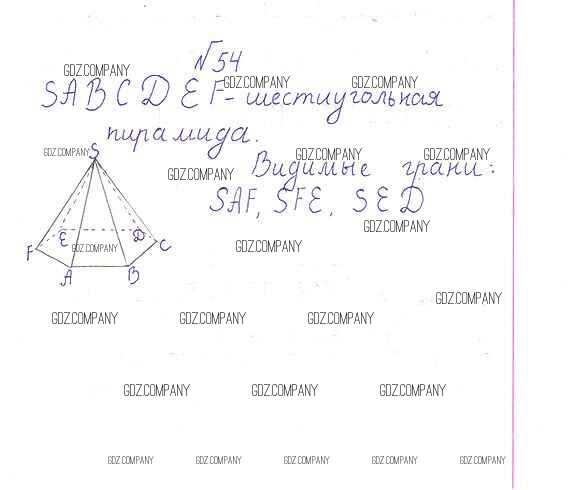 № 54
GDZ.COMPANY
GDZ.COMPANY GDZ.COMPANY
SABCDEF - шестиугольная
пирамида.
GDZ.COMPANY GDZ.COMPANY GDZ.COMPANY
S
GDZ.COMPANY Видимые грани:
SAF, SFE, SED
GDZ.COMPANY
F E GDZ.COMPANY D C GDZ.COMPANY
A B
GDZ.COMPANY
GDZ.COMPANY GDZ.COMPANY GDZ.COMPANY
GDZ.COMPANY GDZ.COMPANY GDZ.COMPANY
GDZ.COMPANY GDZ.COMPANY GDZ.COMPANY GDZ.COMPANY GDZ.COMPANY